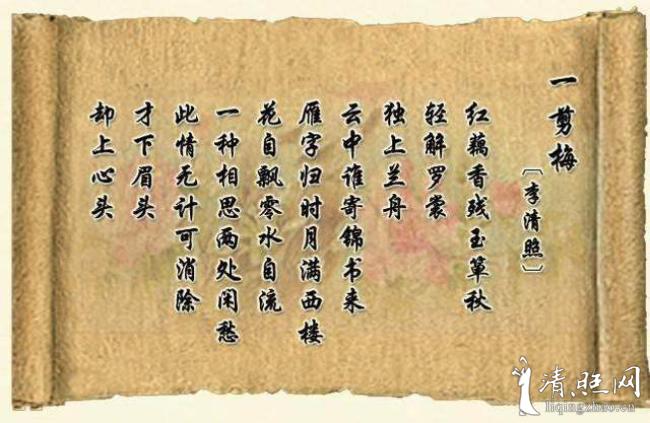 一剪梅
〔李清照〕
红藕香残玉簟秋
轻解罗裳
独上兰舟
云中谁寄锦书来
雁字归时月满西楼
花自飘零水自流
一种相思两处闲愁
此情无计可消除
才下眉头
却上心头
清旺网
liqingzhao.cn